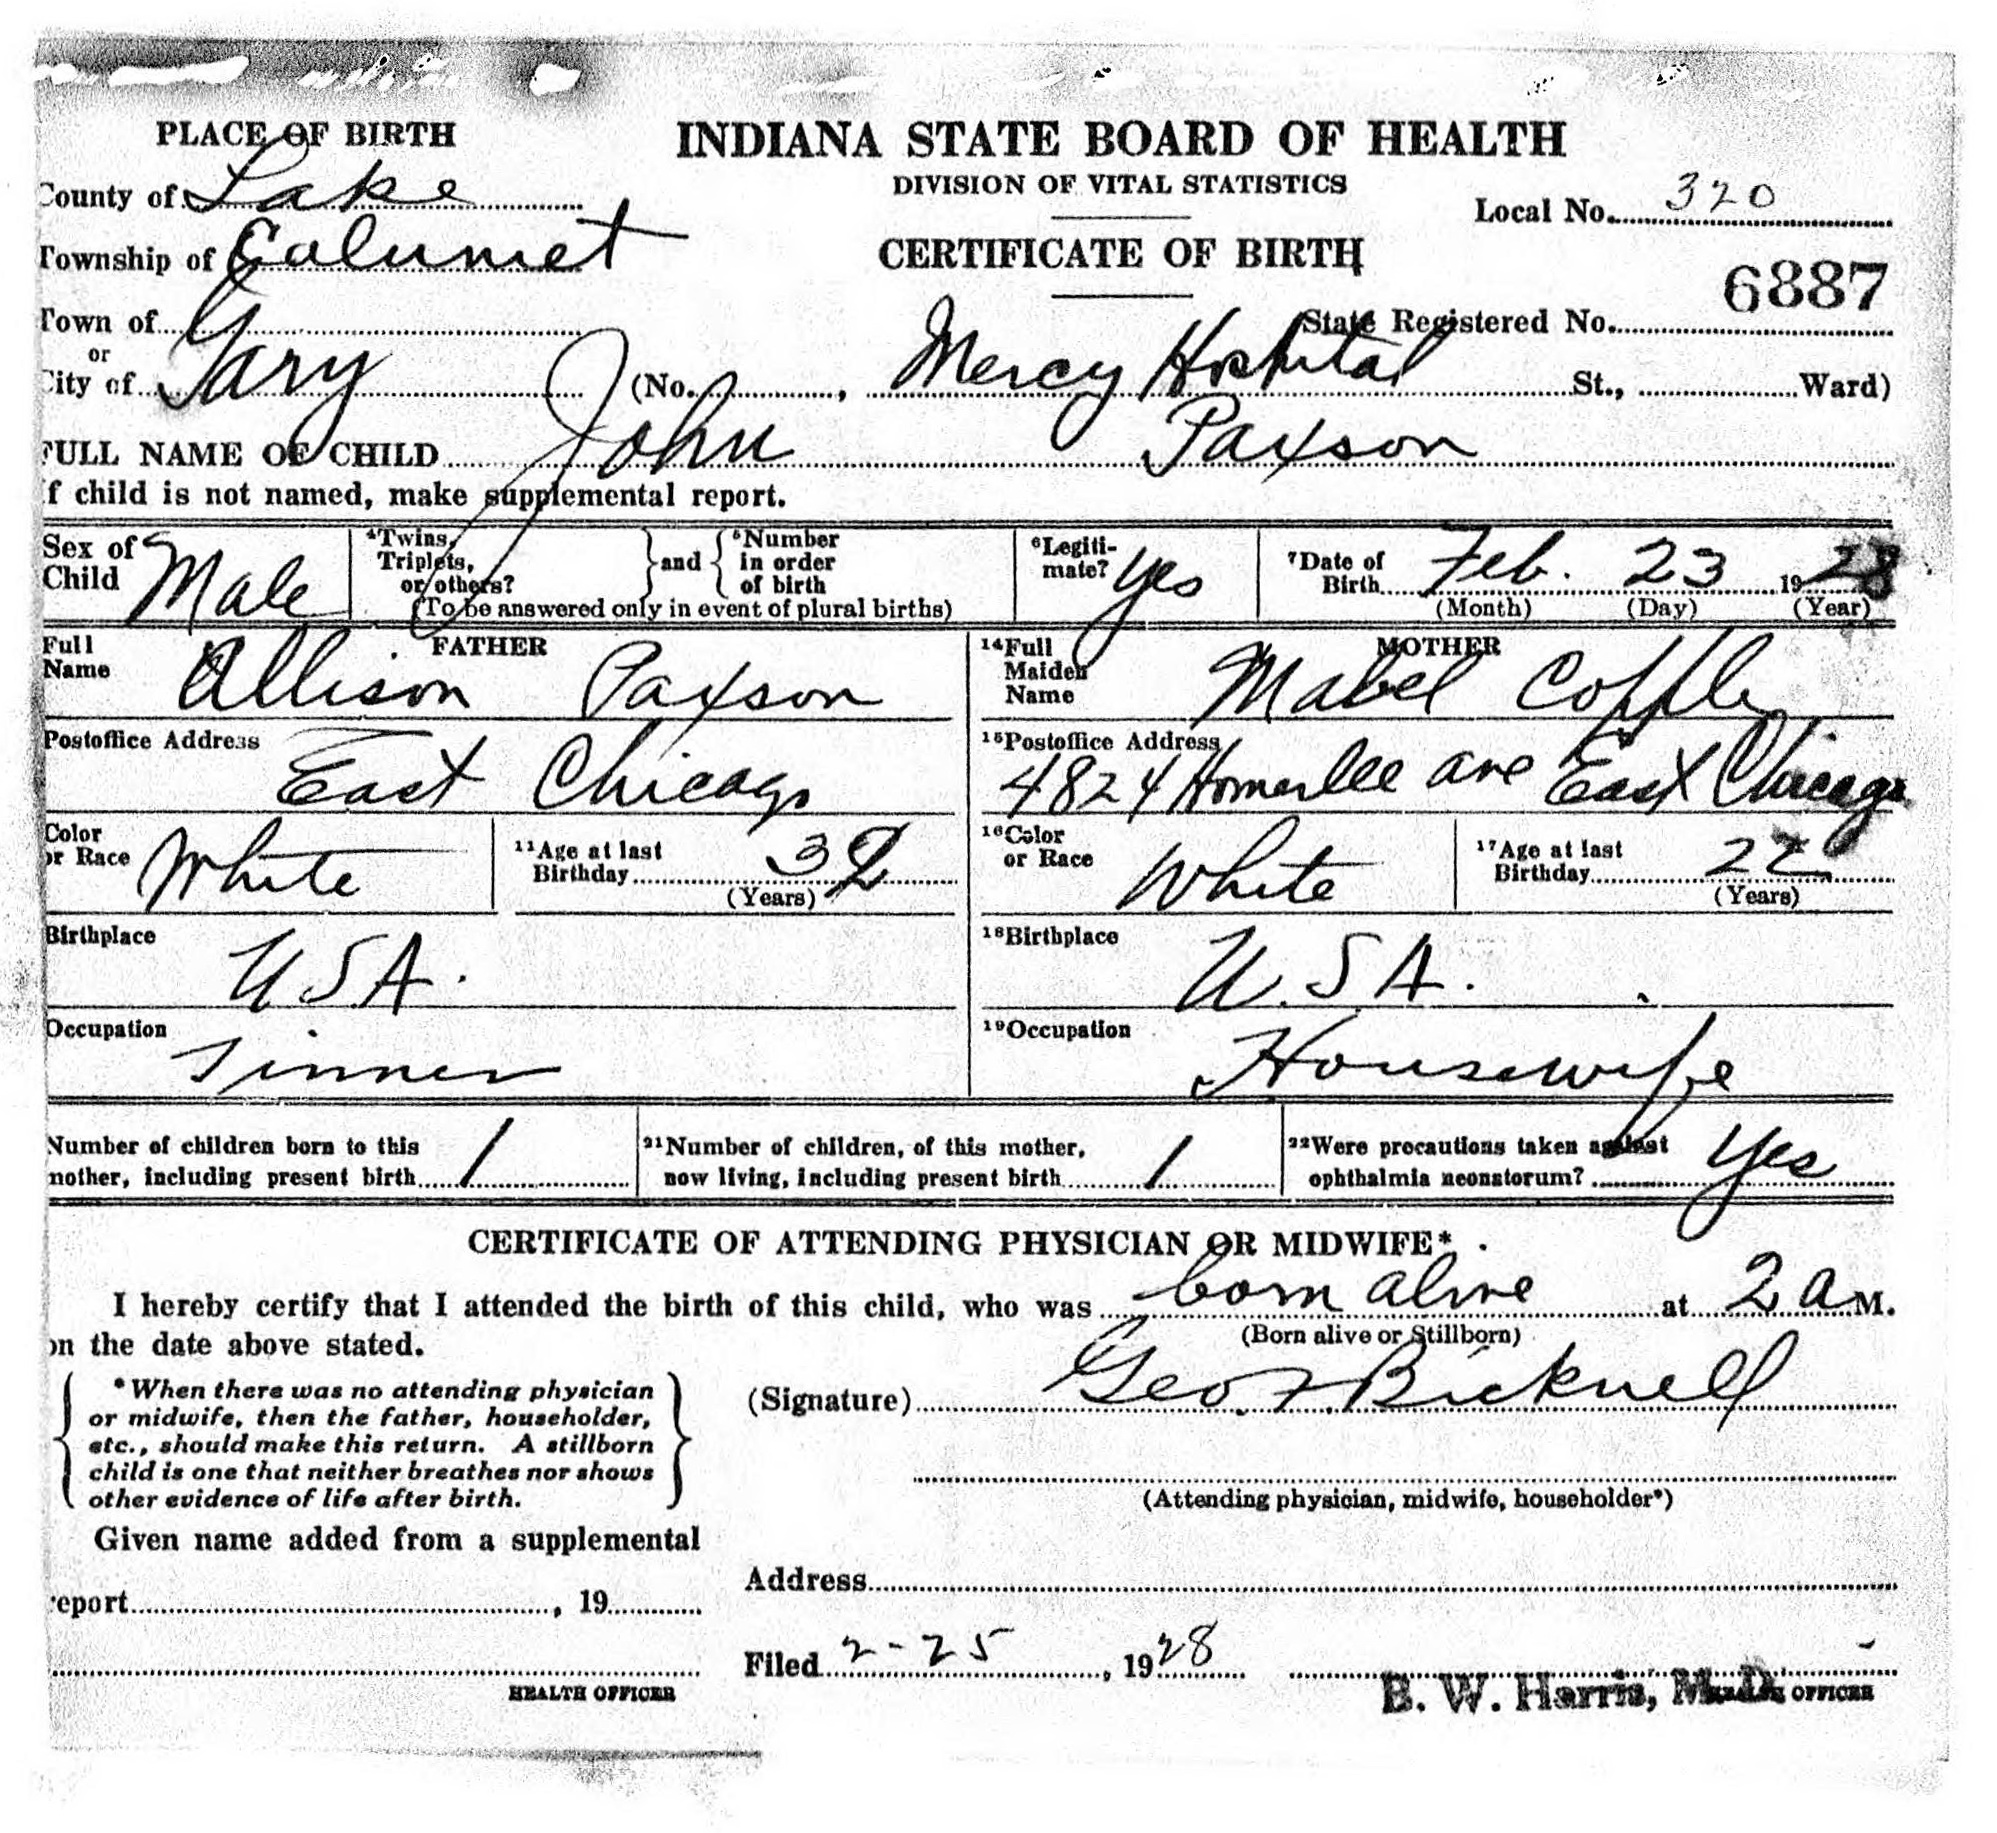 PLACE OF BIRTH
INDIANA STATE BOARD OF HEALTH
DIVISION OF VITAL STATISTICS
County of Lake
Local No. 320
Township of Calumet
CERTIFICATE OF BIRTH
6887
Town of
State Registered No.
or
City of Gary (No. , Mercy Hospital St., Ward)
FULL NAME OF CHILD John Paxson
If child is not named, make supplemental report.
Sex of Child Male
4Twins, Triplets, or others? and 5Number in order of birth
(To be answered only in event of plural births)
6Legiti-mate? Yes
7Date of Birth Feb. 23 1928
(Month) (Day) (Year)
FATHER
Full Name Allison Paxson
Postoffice Address East Chicago
Color or Race White
11Age at last Birthday 32
(Years)
Birthplace USA.
Occupation Tinner
MOTHER
14Full Maiden Name Mabel
15Postoffice Address 4824 Homerlee ave East Chicago
16Color or Race White
17Age at last Birthday 22
(Years)
18Birthplace U.S.A.
19Occupation Housewife
Number of children born to this mother, including present birth 1
21Number of children, of this mother, now living, including present birth 1
22Were precautions taken against ophthalmia neonatorum? Yes
CERTIFICATE OF ATTENDING PHYSICIAN OR MIDWIFE*
I hereby certify that I attended the birth of this child, who was born alive at 2 a M.
(Born alive or Stillborn)
on the date above stated.
*When there was no attending physician
or midwife, then the father, householder,
etc., should make this return. A stillborn
child is one that neither breathes nor shows
other evidence of life after birth.
(Signature) Geo. Bicknell
(Attending physician, midwife, householder*)
Given name added from a supplemental
report , 19
Address
Filed 2-25, 1928
HEALTH OFFICER
B. W. Harris, M.D. HEALTH OFFICER